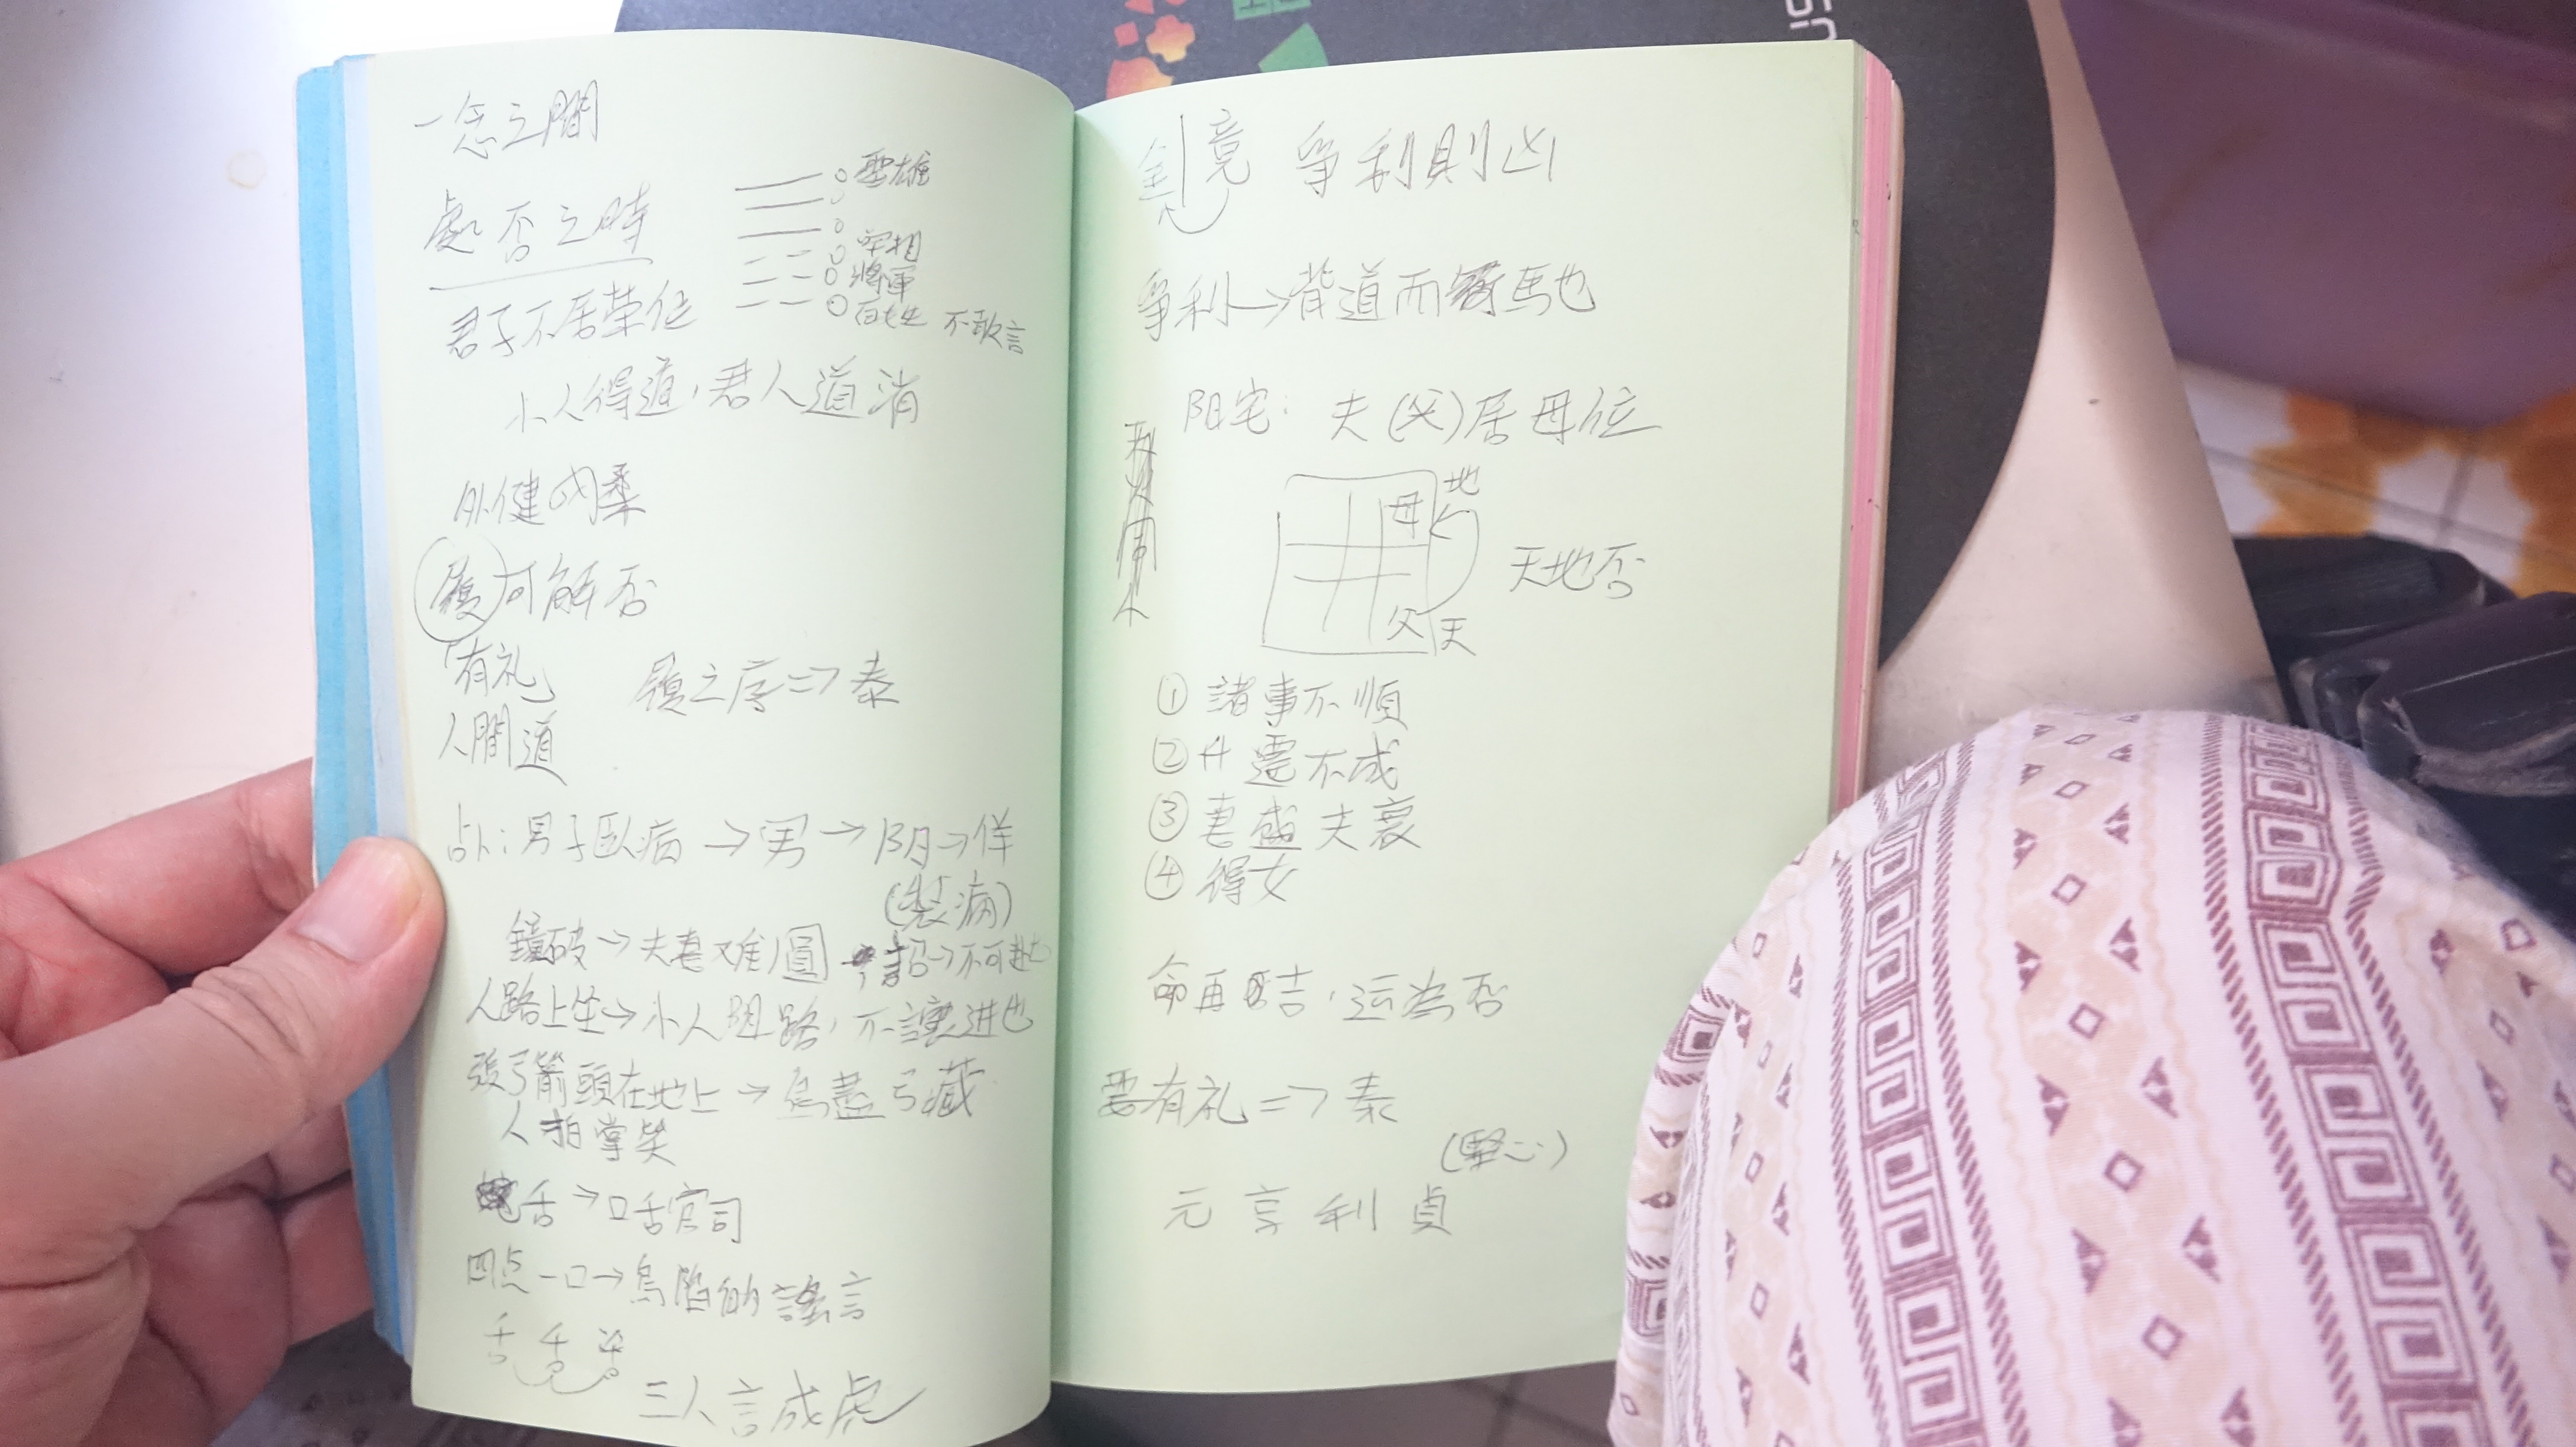 一念之間
聖雄
處否之時
宰相
將軍
百姓 不敢言
君子不居榮位
小人得道，君人道消
外健內柔
履可解否
「有礼」
履之序=>泰
人間道
占卜：男子臥病→男→阴→佯
(裝病)
鏡破→夫妻难圓
招→不可赴
人路上坐→小人阻路，不讓进也
張弓箭頭在地上→鳥盡弓藏
人拍掌笑
舌→口舌官司
四点一口→烏陷的謠言
舌 舌 舌
三人言成虎
鏡 爭利則凶
爭利→背道而 馬也
阳宅：夫(父)居母位
母 地
父 天
天地否
① 諸事不順
② 升遷不成
③ 妻盛夫衰
④ 得女
命再 吉，运為否
要有礼=>泰
(堅心)
元亨利貞